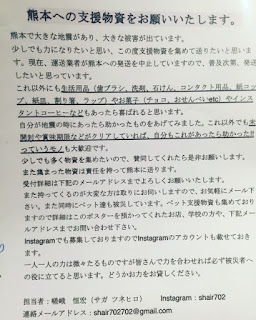 熊本への支援物資をお願いいたします。
熊本で大きな地震があり、大きな被害が出ています。
少しでも力になりたいと思い、この度支援物資を集めて送りたいと思いま
す。現在、運送業者が熊本への発送を中止していますので、普及次第、発送
したいと思っています。
これ以外にも生活用品（歯ブラシ、洗剤、石けん、コンタクト用品、紙コッ
プ、紙皿、割り箸、ラップ）やお菓子（チョコ、おせんべいetc）やインス
タントコーヒーなどもあったら喜ばれると思います。
自分が地震の時にあったら助かったものをあげてみました。これ以外でも未
開封や賞味期限などがクリアしていれば、自分もこれがあったら助かった!!
っていうモノも大歓迎です。
少しでも多く物資を集めたいので、賛同してくれたら是非お願いします。
また集まった物資は責任を持って熊本に送ります。
受付詳細は下記のメールアドレスまでよろしくお願いいたします。
また持ってくるのが大変な方は取りにお伺いしますので、お気軽にメール下
さい。また同時にペット達も被災しています。ペット支援物資も集めており
ますので詳細はこのポスターを預かってくれたお店、学校の方や、下記メー
ルアドレスまでお問い合わせ下さい。
Instagramでも募集しておりますのでInstagramのアカウントも載せておき
ます。
一人一人の力は微々たるものですが皆さんで力を合わせれば必ず被害者へ
の役に立てると思います。どうかお力をお貸しください。
担当者：嵯峨 恒宏（サガ ツネヒロ） Instagram：shair702
連絡メールアドレス：shair702702@gmail.com